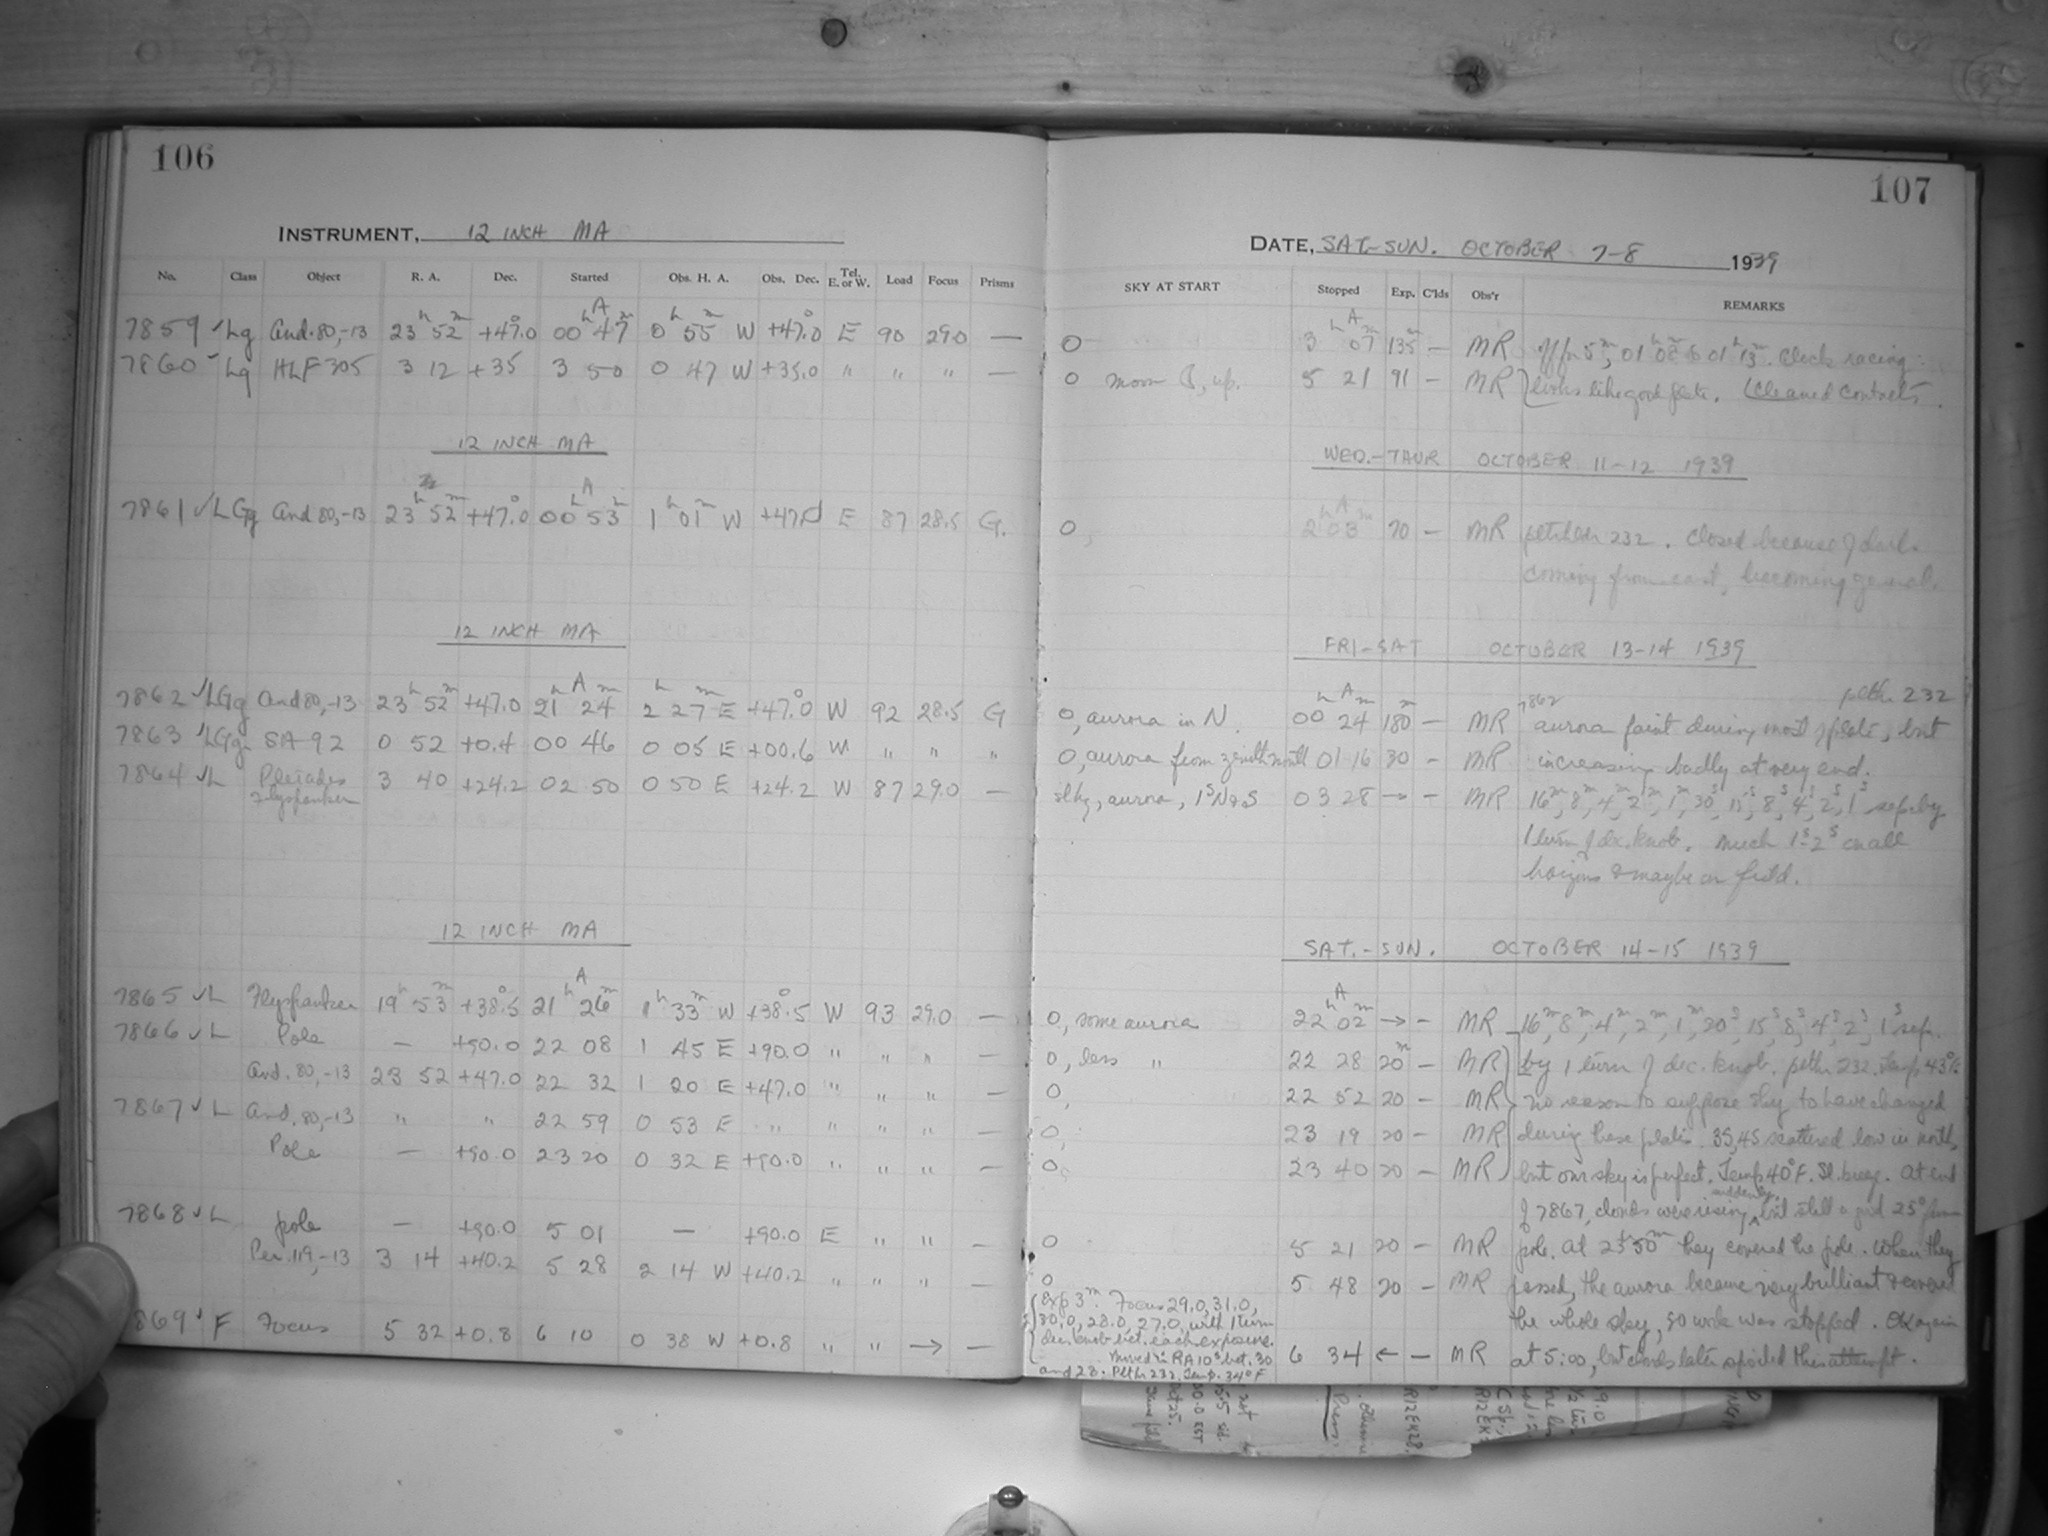 106
INSTRUMENT, 12 INCH MA
No. Class Object R. A. Dec. Started Obs. H. A. Obs. Dec. Tel. E. or W. Load Focus Prisms
7859 ✓ Lg And. 80,-13 23h 52m +47.0° 00h A 47m 0h 55m W +47.0° E 90 29.0 —
7860 ✓ Lg HLF 305 3 12 +35 3 50 0 47 W +35.0 " " " —
12 INCH MA
7861 ✓ LGg And 80,-13 23h 52m +47.0° 00h A 53m 1h 01m W +47.0 E 87 28.5 G.
12 INCH MA
7862 ✓ LGg And 80,-13 23h 52m +47.0 21h A 24m 2h 27m E +47.0° W 92 28.5 G
7863 ✓ LGg SA 92 0 52 +0.4 00 46 0 05 E +00.6 W " " "
7864 ✓ L Pleiades 3 40 +24.2 02 50 0 50 E +24.2 W 87 29.0 —
Flyspanker
12 INCH MA
7865 ✓ L Flyspanker 19h 53m +38.5° 21h A 26m 1h 33m W +38.5° W 93 29.0 —
7866 ✓ L Pole — +90.0 22 08 1 45 E +90.0 " " " —
And. 80,-13 23 52 +47.0 22 32 1 20 E +47.0 " " " —
7867 ✓ L And. 80,-13 " " 22 59 0 53 E " " " " —
Pole — +90.0 23 20 0 32 E +90.0 " " " —
7868 ✓ L pole — +90.0 5 01 — +90.0 E " " —
Per. 119,-13 3 14 +40.2 5 28 2 14 W +40.2 " " " —
869 ✓ F Focus 5 32 +0.8 6 10 0 38 W +0.8 " " → —
107
DATE, SAT-SUN. OCTOBER 7-8 1939
SKY AT START Stopped Exp. C'lds Obs'r REMARKS
0 3h A 07m 135m — MR off for 5m, 01h 08 to 01h 13m. Clock racing.
0 moon up. 5 21 91 — MR looks like good plate. (Cleaned contacts.
WED.-THUR OCTOBER 11-12 1939
0, 2h A 03m 70 — MR pltholdr 232. Closed because of clouds
coming from east, becoming general.
FRI-SAT OCTOBER 13-14 1939
plth. 232
0, aurora in N. 00h A 24m 180m — MR 7862 aurora faint during most of plate, but
0, aurora from zenith north 01 16 30 — MR increasing badly at very end.
slhz, aurora, 1s N & S 03 28 → — MR 16m, 8m, 4m, 2m, 1m, 30s, 15s, 8s, 4s, 2s, 1s sep. by
1 turn of dec. knob. Much 1s-2s on all
horizons & maybe on field.
SAT.-SUN. OCTOBER 14-15 1939
0, some aurora 22h A 02m → — MR 16m, 8m, 4m, 2m, 1m, 30s, 15s, 8s, 4s, 2s, 1s sep.
0, less " 22 28 20m — MR by 1 turn of dec. knob. plth 232. Temp 43°F.
0, 22 52 20 — MR no reason to suppose sky to have changed
0, 23 19 20 — MR during these plates. 3S,4S scattered low in north,
0, 23 40 20 — MR but our sky is perfect. Temp 40°F. Sl. breeze. At end
of 7867, clouds were rising suddenly, but still a good 25° from
0 5 21 20 — MR pole. At 23h 50m they covered the pole. When they
0 5 48 20 — MR passed, the aurora became very brilliant & covered
the whole sky, so work was stopped. OK again
Exp 3m. Focus 29.0, 31.0,
30.0, 28.0, 27.0, with 1 turn
dec. knob bet. each exposure.
Moved in RA 10s bet. 30
and 28. Plth 232, Temp. 34°F
6 34 ← — MR at 5:00, but clouds later spoiled this attempt.